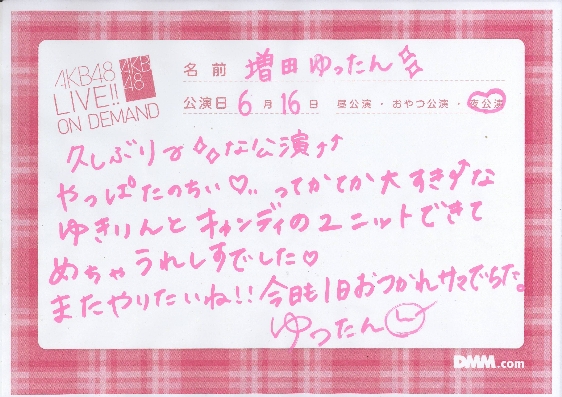 AKB48
LIVE!!
ON DEMAND
AKB
48
名前 増田ゆったん
公演日 6月16日 昼公演・おやつ公演・夜公演
久しぶりでな公演↑↑
やっぱたのちぃ♡.. ってかてか大すき↑な
ゆきりんとキャンディのユニットできて
めちゃうれしすでした♡
またやりたいね!!今日も1日おつかれサマでちた。
ゆったん
DMM.com